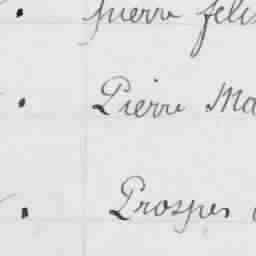 Pierre
Pierre Ma
Prosper